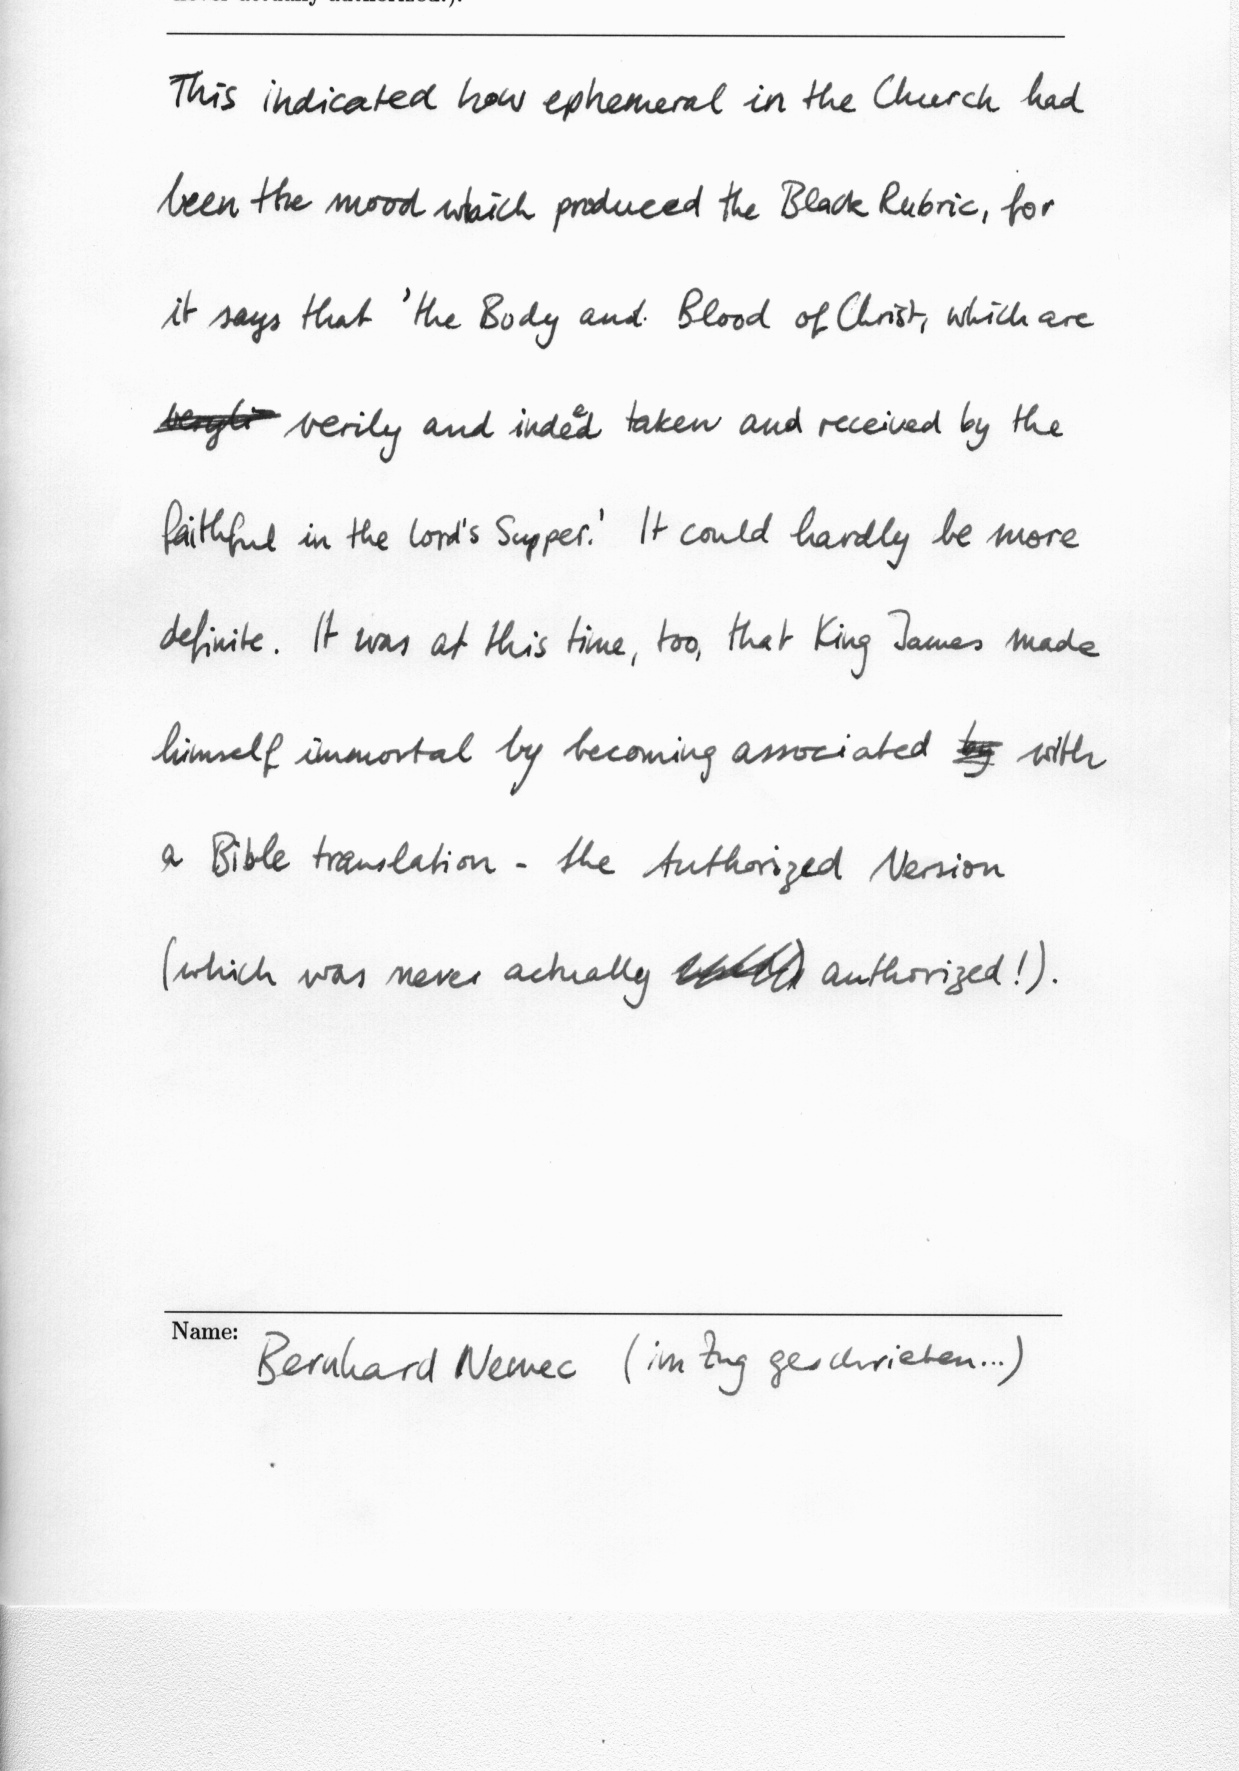 never actually authorized!).
This indicated how ephemeral in the Church had
been the mood which produced the Black Rubric, for
it says that 'the Body and Blood of Christ, which are
verily and indeed taken and received by the
faithful in the Lord's Supper.' It could hardly be more
definite. It was at this time, too, that King James made
himself immortal by becoming associated by with
a Bible translation - the Authorized Version
(which was never actually authorized!).
Name: Bernhard Nemec (im Zug geschrieben...)